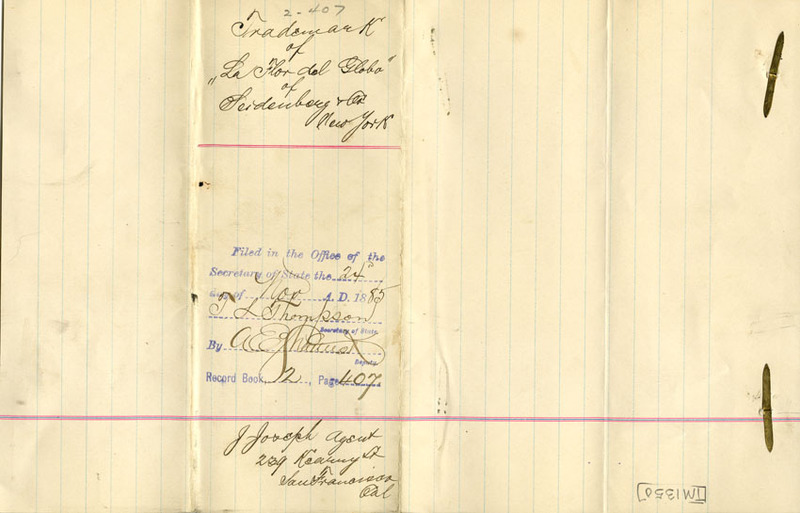 2-407
Trademark
of
„La Flor del Globo"
of
Seidenberg & Co
New York
Filed in the Office of the
Secretary of State the 24"
day of Nov A. D. 1885
T L Thompson
Secretary of State
By A E
Deputy
Record Book 2, Page 407
J Joseph Agent
239 Kearny St
San Francisco
Cal
TM1350